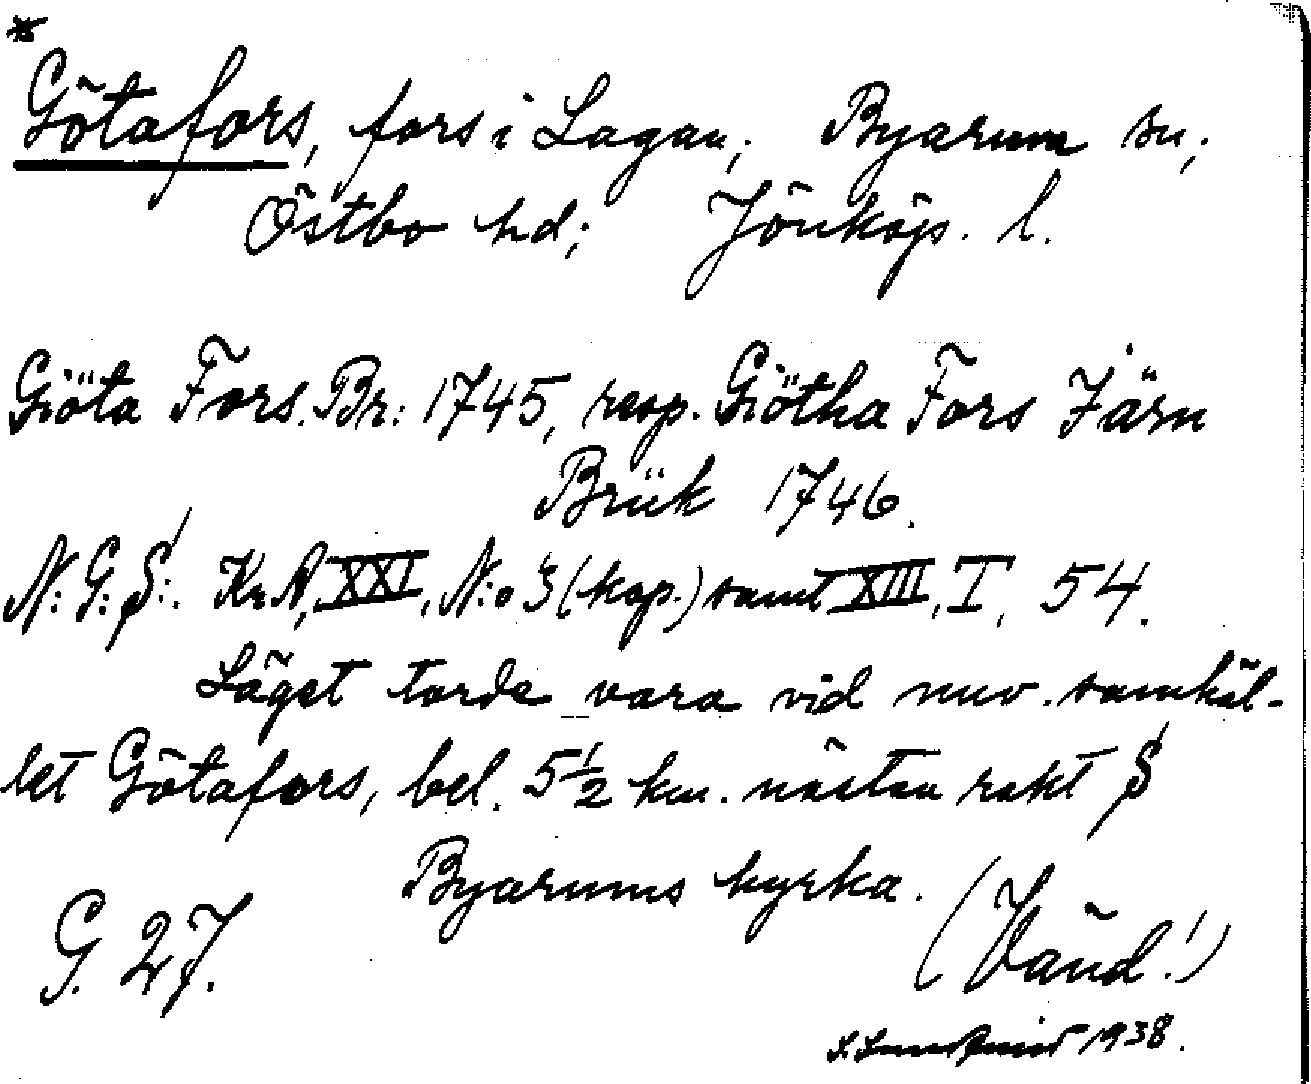 *
Götafors, fors i Lagan; Byarum sn;
Östbo hd; Jönköp. l.
Giöta Fors. Br: 1745, resp. Giötha Fors Järn
Brük 1746.
N: G: S: KrA, XXI, N:o 3 (kop.) samt XIII, I, 54.
Läget torde vara vid nuv. samhäl-
let Götafors, bel. 5 1/2 km. nästan rakt S
Byarums kyrka.
(Vänd!)
G. 27.
1938.